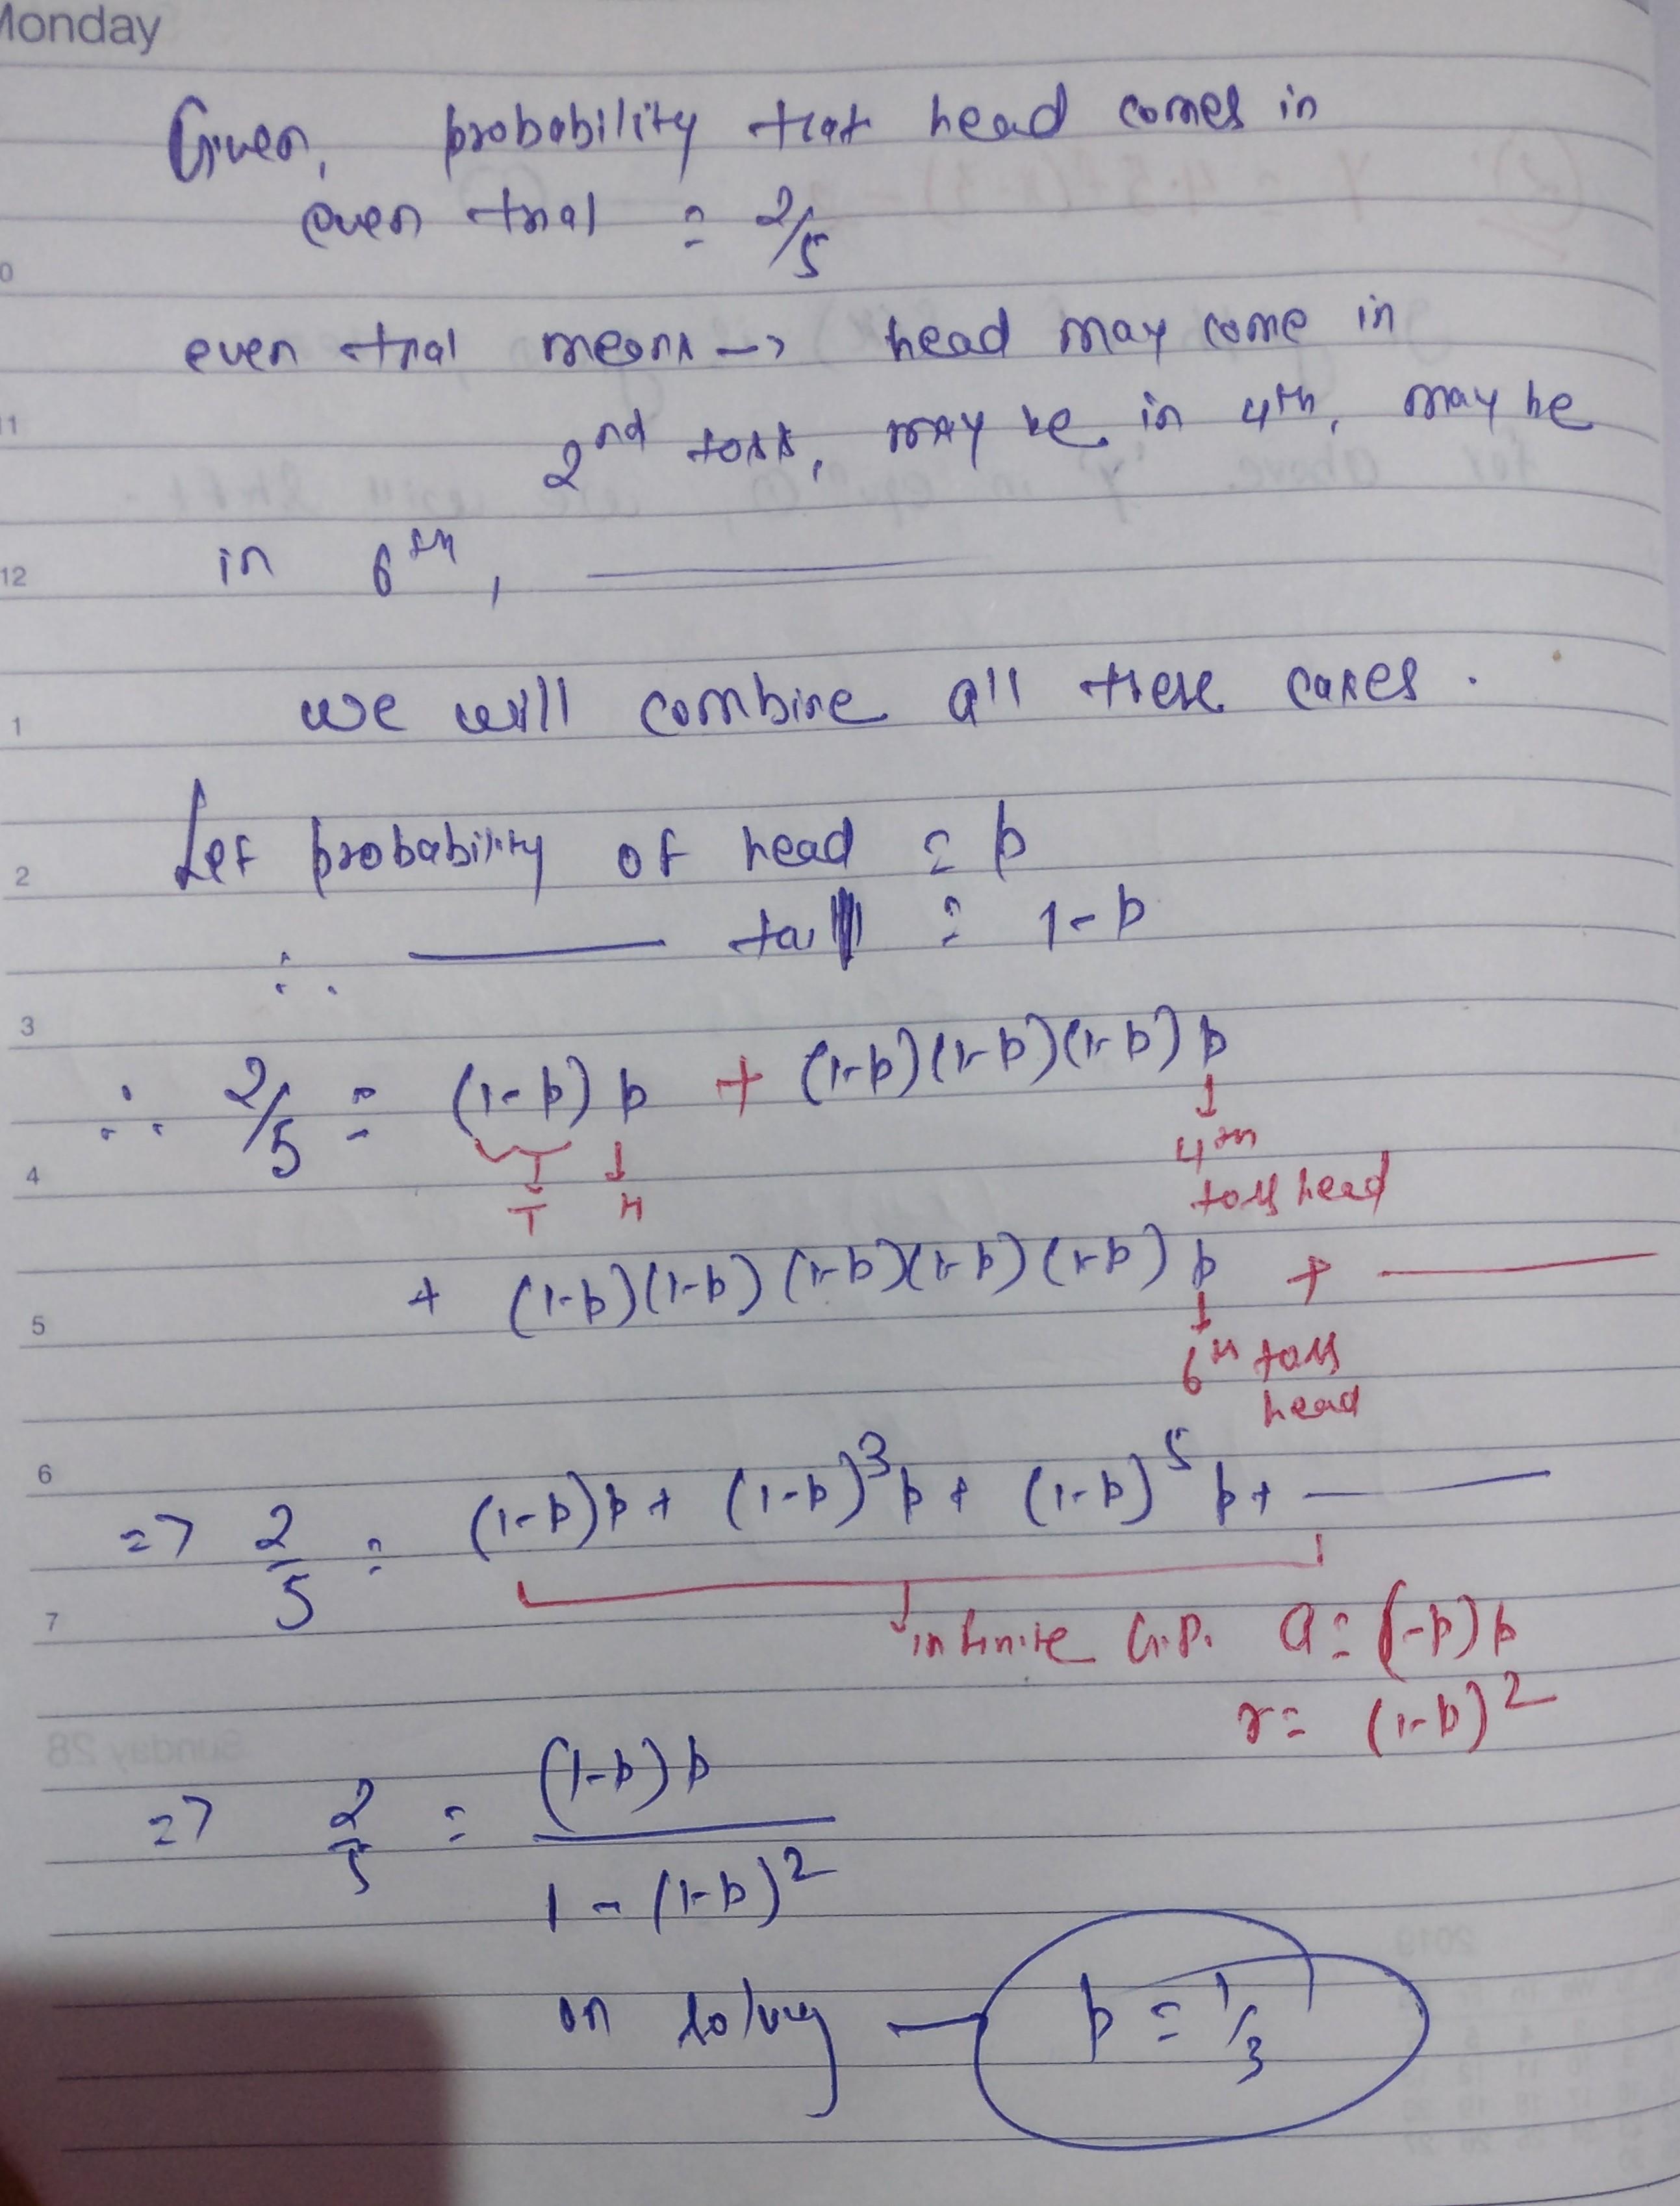 Monday
Given, probability that head comes in
even trial = 2/5
even trial means -> head may come in
11
2nd toss, may be in 4th, may be
in 6th, ———
12
we will combine all these cases.
1
Let probability of head = p
2
∴ ——— tail = 1-p
3
∴ 2/5 = (1-p) p + (1-p)(1-p)(1-p) p
T H 4th
4
toss head
+ (1-p)(1-p)(1-p)(1-p)(1-p) p + ———
5
6th toss
head
6
=> 2/5 = (1-p)p + (1-p)^3 p + (1-p)^5 p + ———
7
infinite G.P. a = (1-p)p
r = (1-p)^2
Sunday 28
=> 2/5 = (1-p)p / 1-(1-p)^2
2019
on solving — p = 1/3